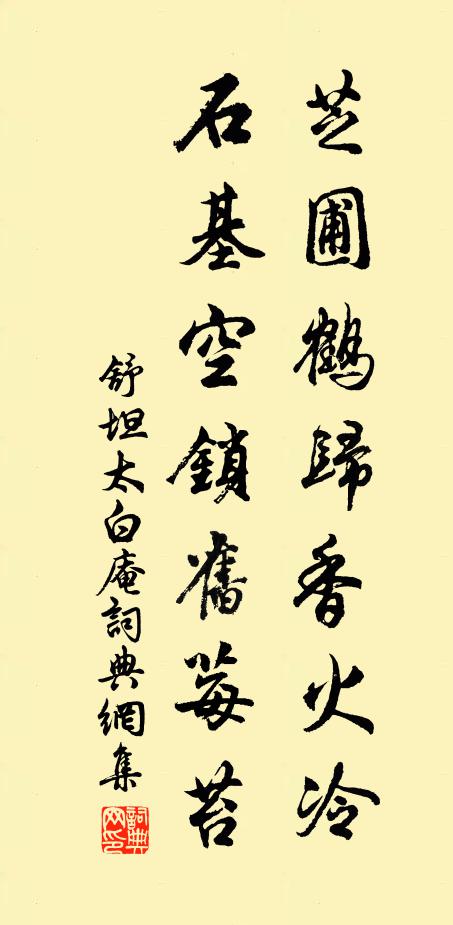 芝圃鶴歸香火冷
石基空鎖舊莓苔
舒坦太白庵詞典網集
詞典网印